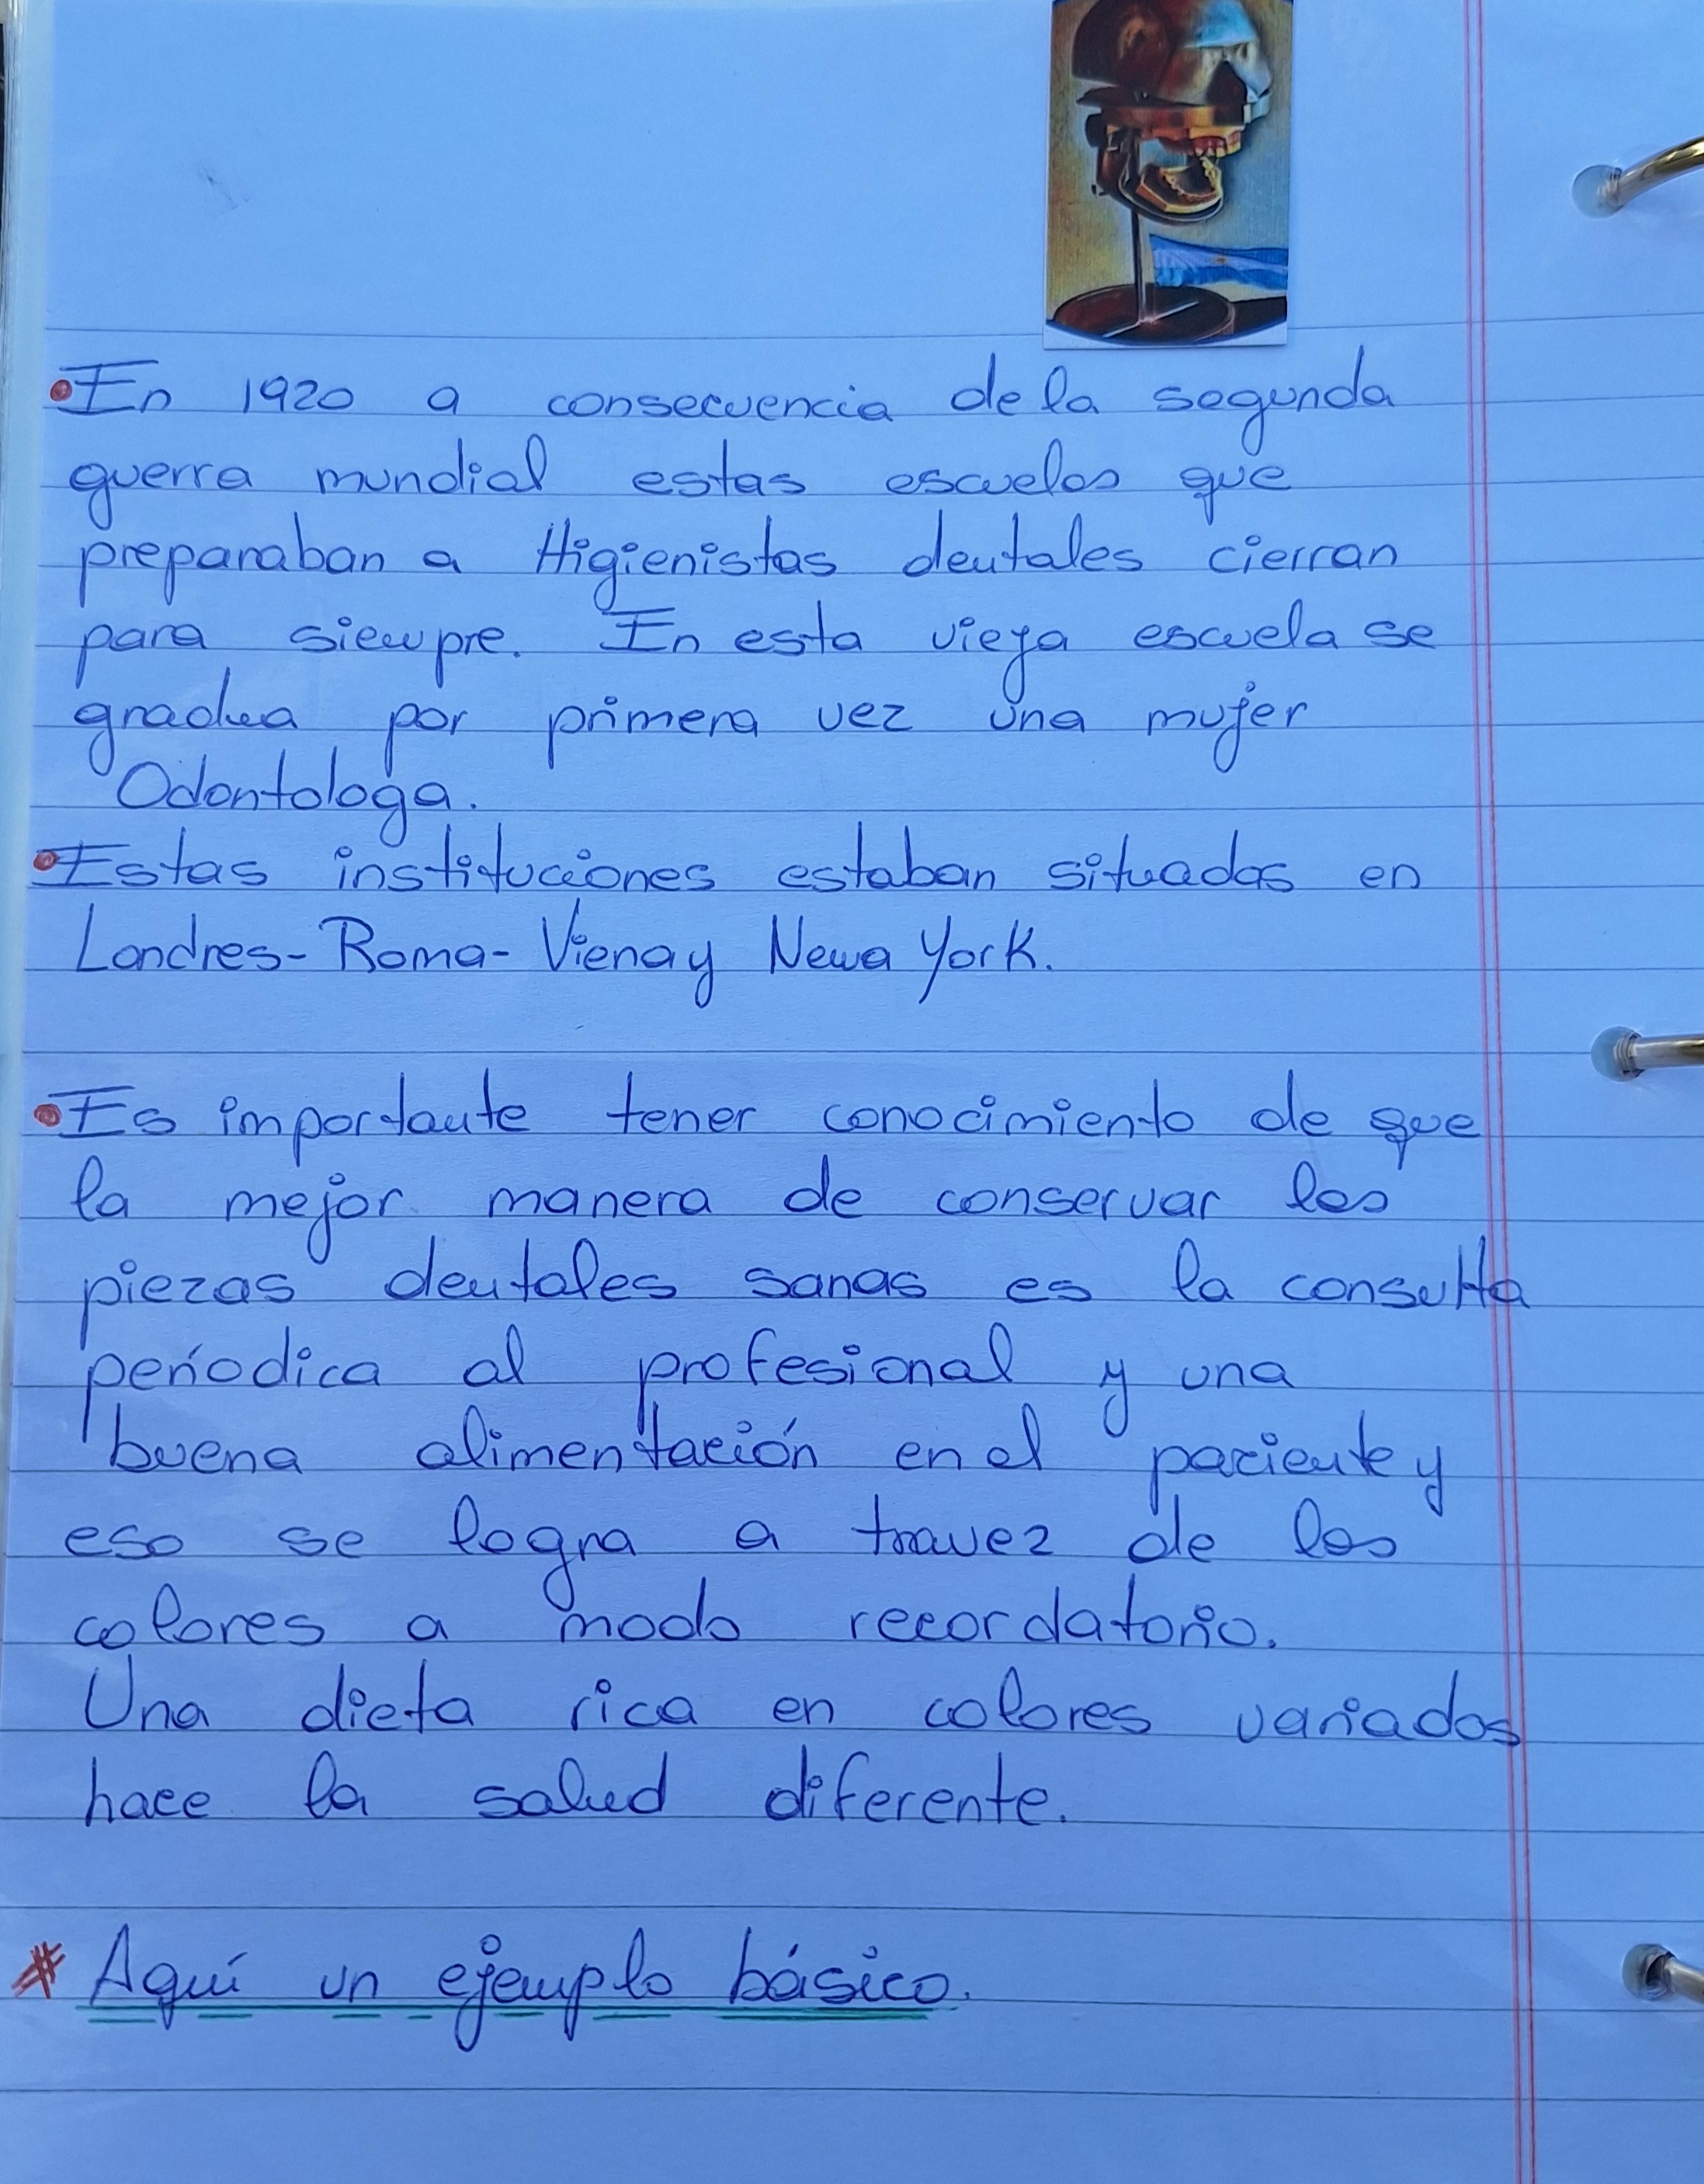 • En 1920 a consecuencia de la segunda
guerra mundial estas escuelas que
preparaban a Higienistas dentales cierran
para siempre. En esta vieja escuela se
gradua por primera vez una mujer
Odontologa.
• Estas instituciones estaban situadas en
Londres- Roma- Viena y Neva York.
• Es importante tener conocimiento de que
la mejor manera de conservar las
piezas dentales sanas es la consulta
períodica al profesional y una
buena alimentación en el paciente y
eso se logra a travez de los
colores a modo recordatorio.
Una dieta rica en colores variados
hace la salud diferente.
* Aquí un ejemplo básico.